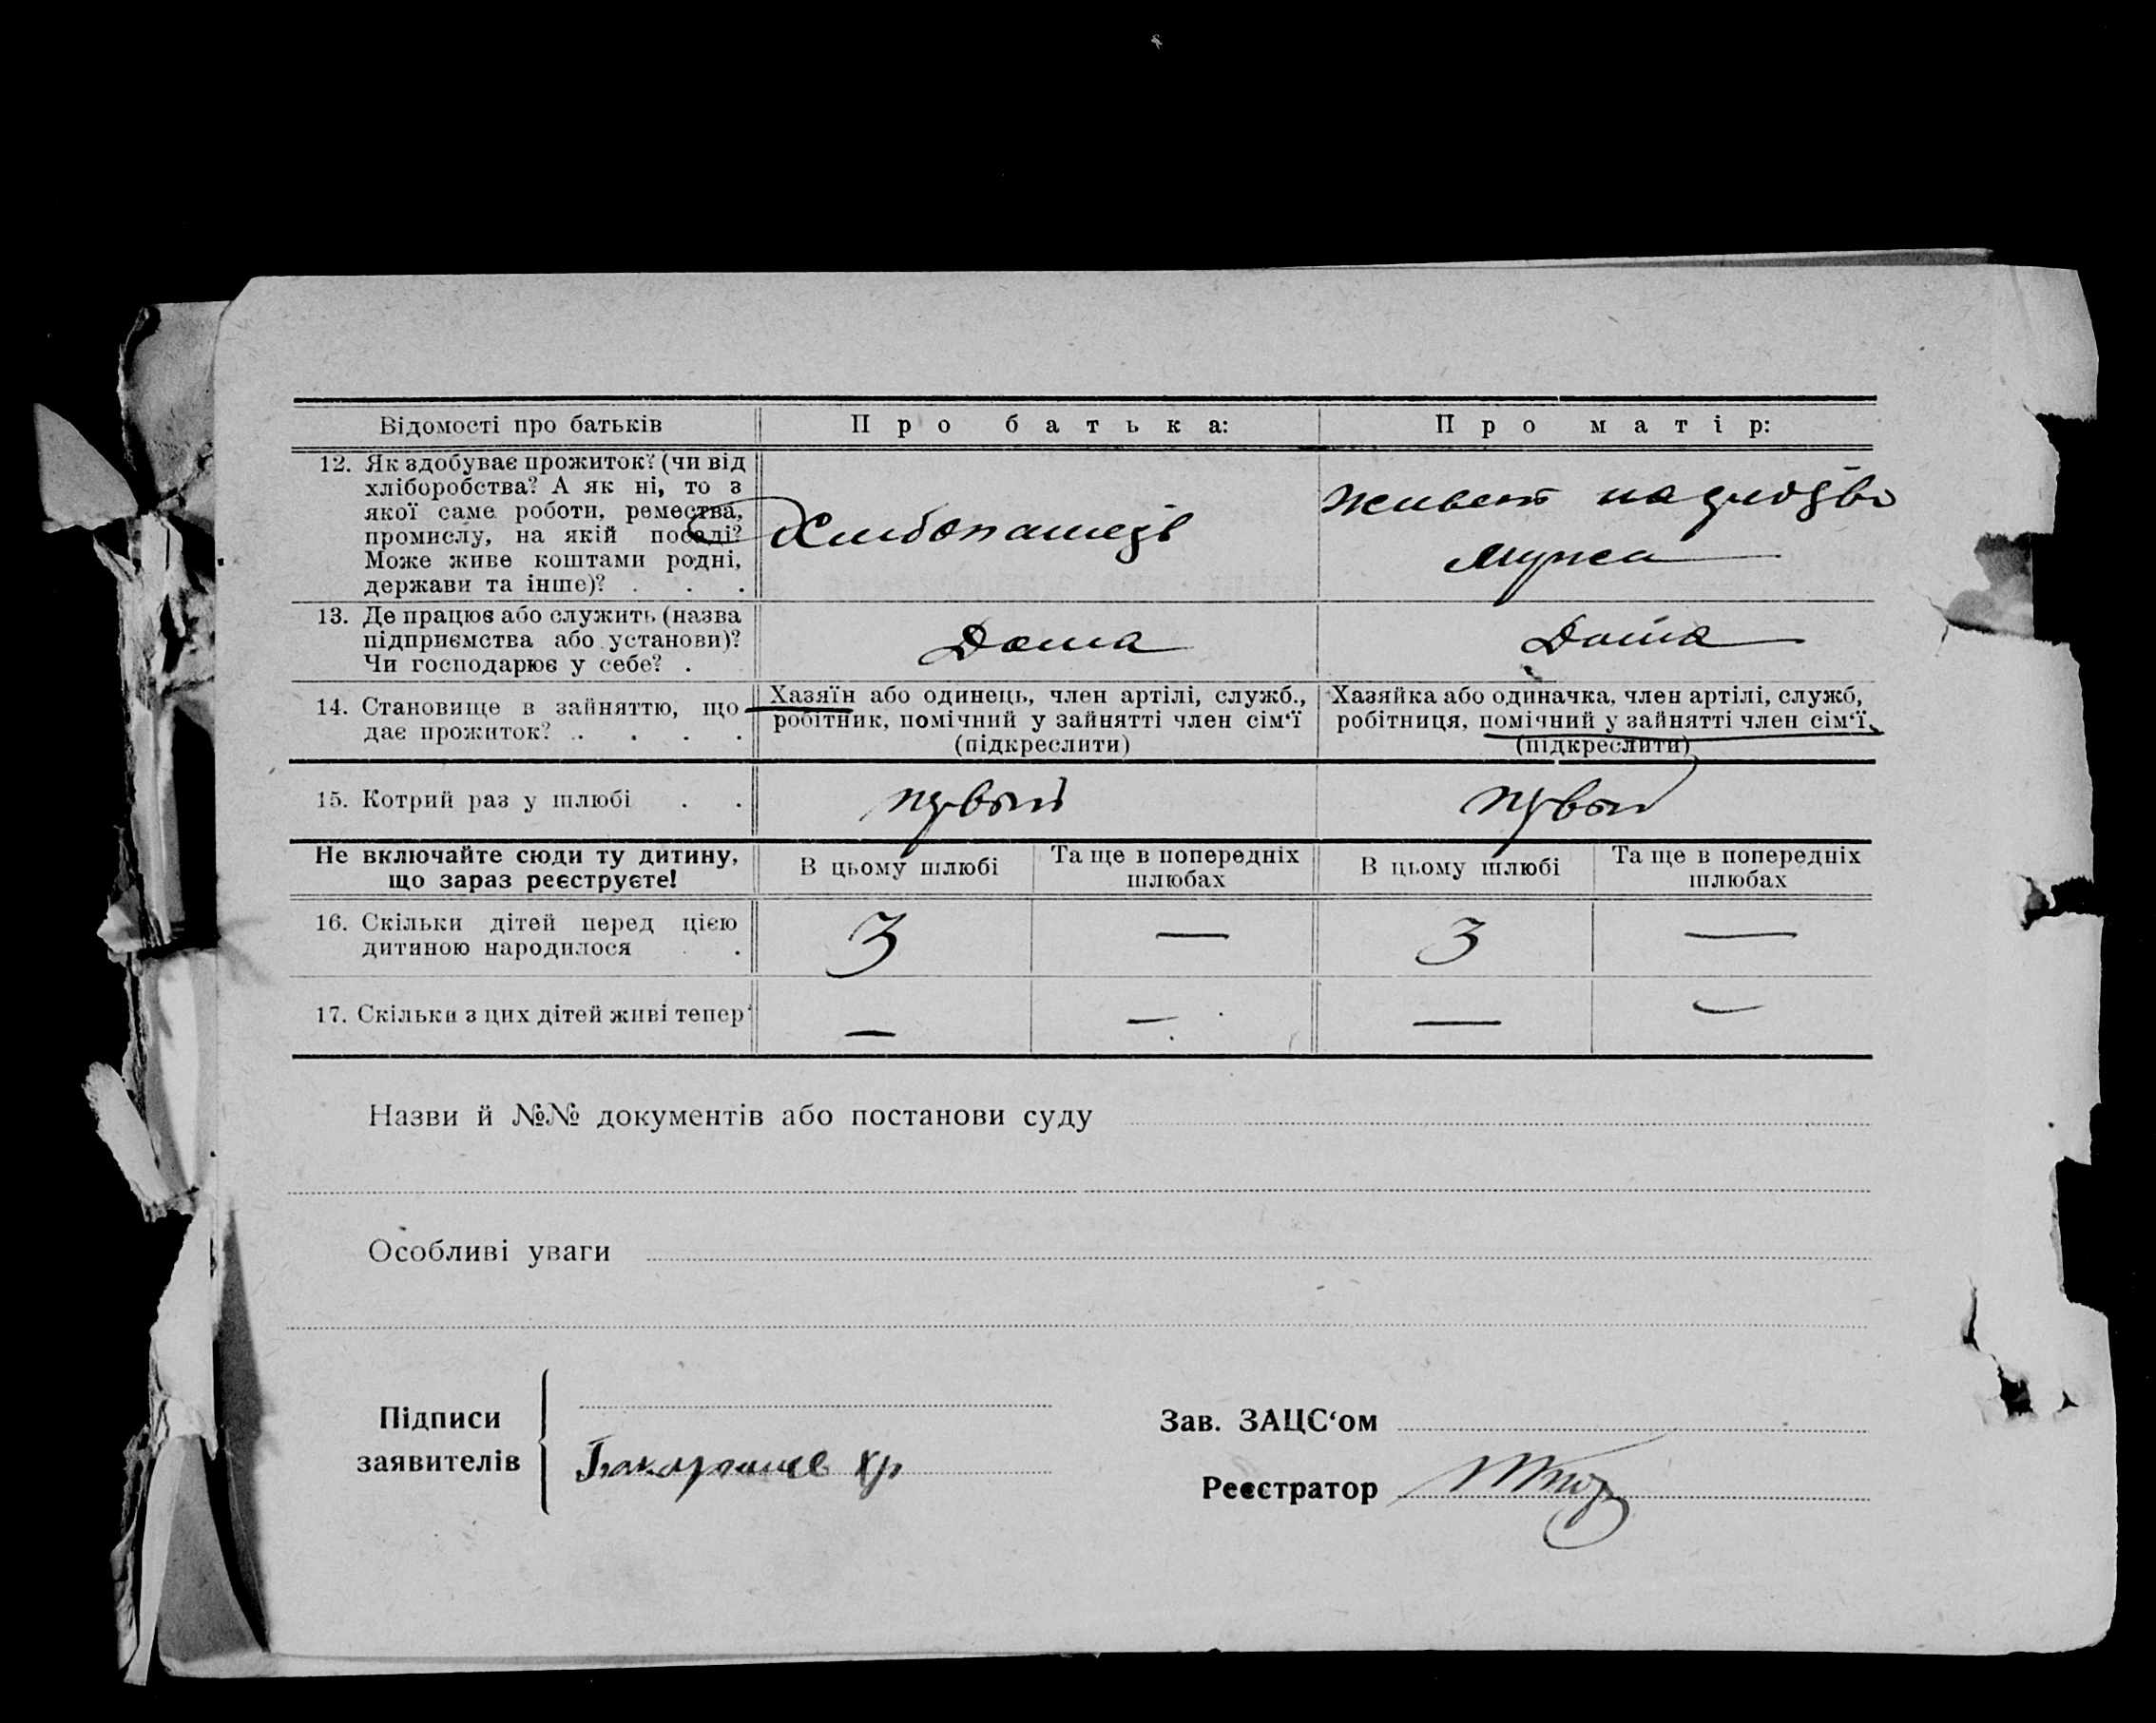 Відомості про батьків
Про батька:
Про матір:
12. Як здобуває прожиток? (чи від
хліборобства? А як ні, то з
якої саме роботи, ремества,
промислу, на якій посаді?
Може живе коштами родні,
держави та інше)? . . .
Хлибопашец
живет на
мужа
13. Де працює або служить (назва
підприємства або установи)?
Чи господарює у себе? .
Дома
Дома
14. Становище в зайняттю, що
дає прожиток? . . . .
Хазяїн або одинець, член артілі, служб.,
робітник, помічний у зайнятті член сім'ї
(підкреслити)
Хазяйка або одиначка, член артілі, служб,
робітниця, помічний у зайнятті член сім'ї,
(підкреслити)
15. Котрий раз у шлюбі . .
Не включайте сюди ту дитину,
що зараз реєструєте!
В цьому шлюбі
Та ще в попередніх
шлюбах
В цьому шлюбі
Та ще в попередніх
шлюбах
16. Скільки дітей перед цією
дитиною народилося . .
3
—
3
—
17. Скільки з цих дітей живі тепер
—
—
—
—
Назви й №№ документів або постанови суду
Особливі уваги
Підписи
заявителів
Зав. ЗАЦС'ом
Реєстратор